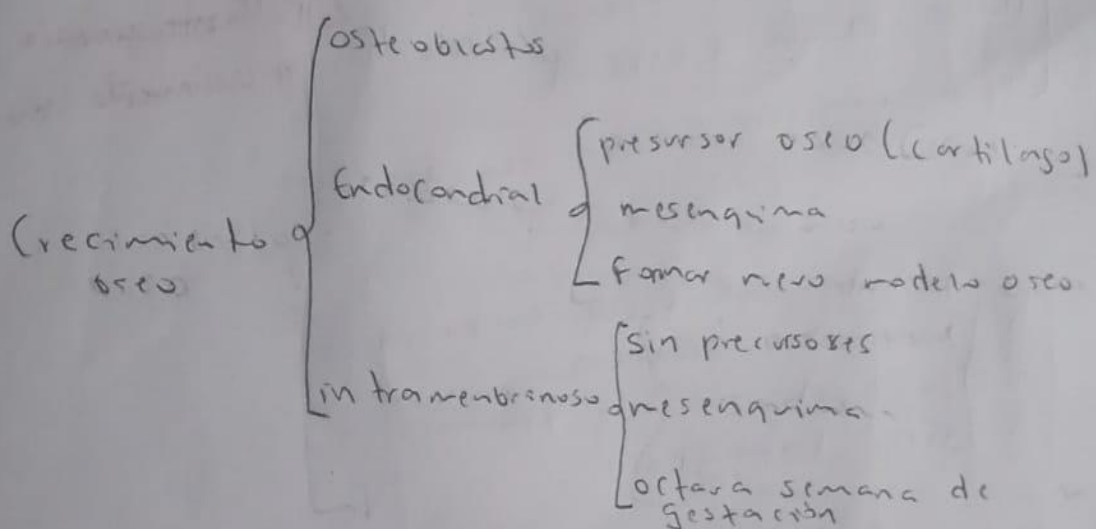 Crecimiento
oseo
osteoblastos
Endocondrial
presursor oseo (cartilago)
mesenquima
Formar nuevo modelo oseo
intramenbrinoso
sin precursores
mesenquima
octava semana de
gestación